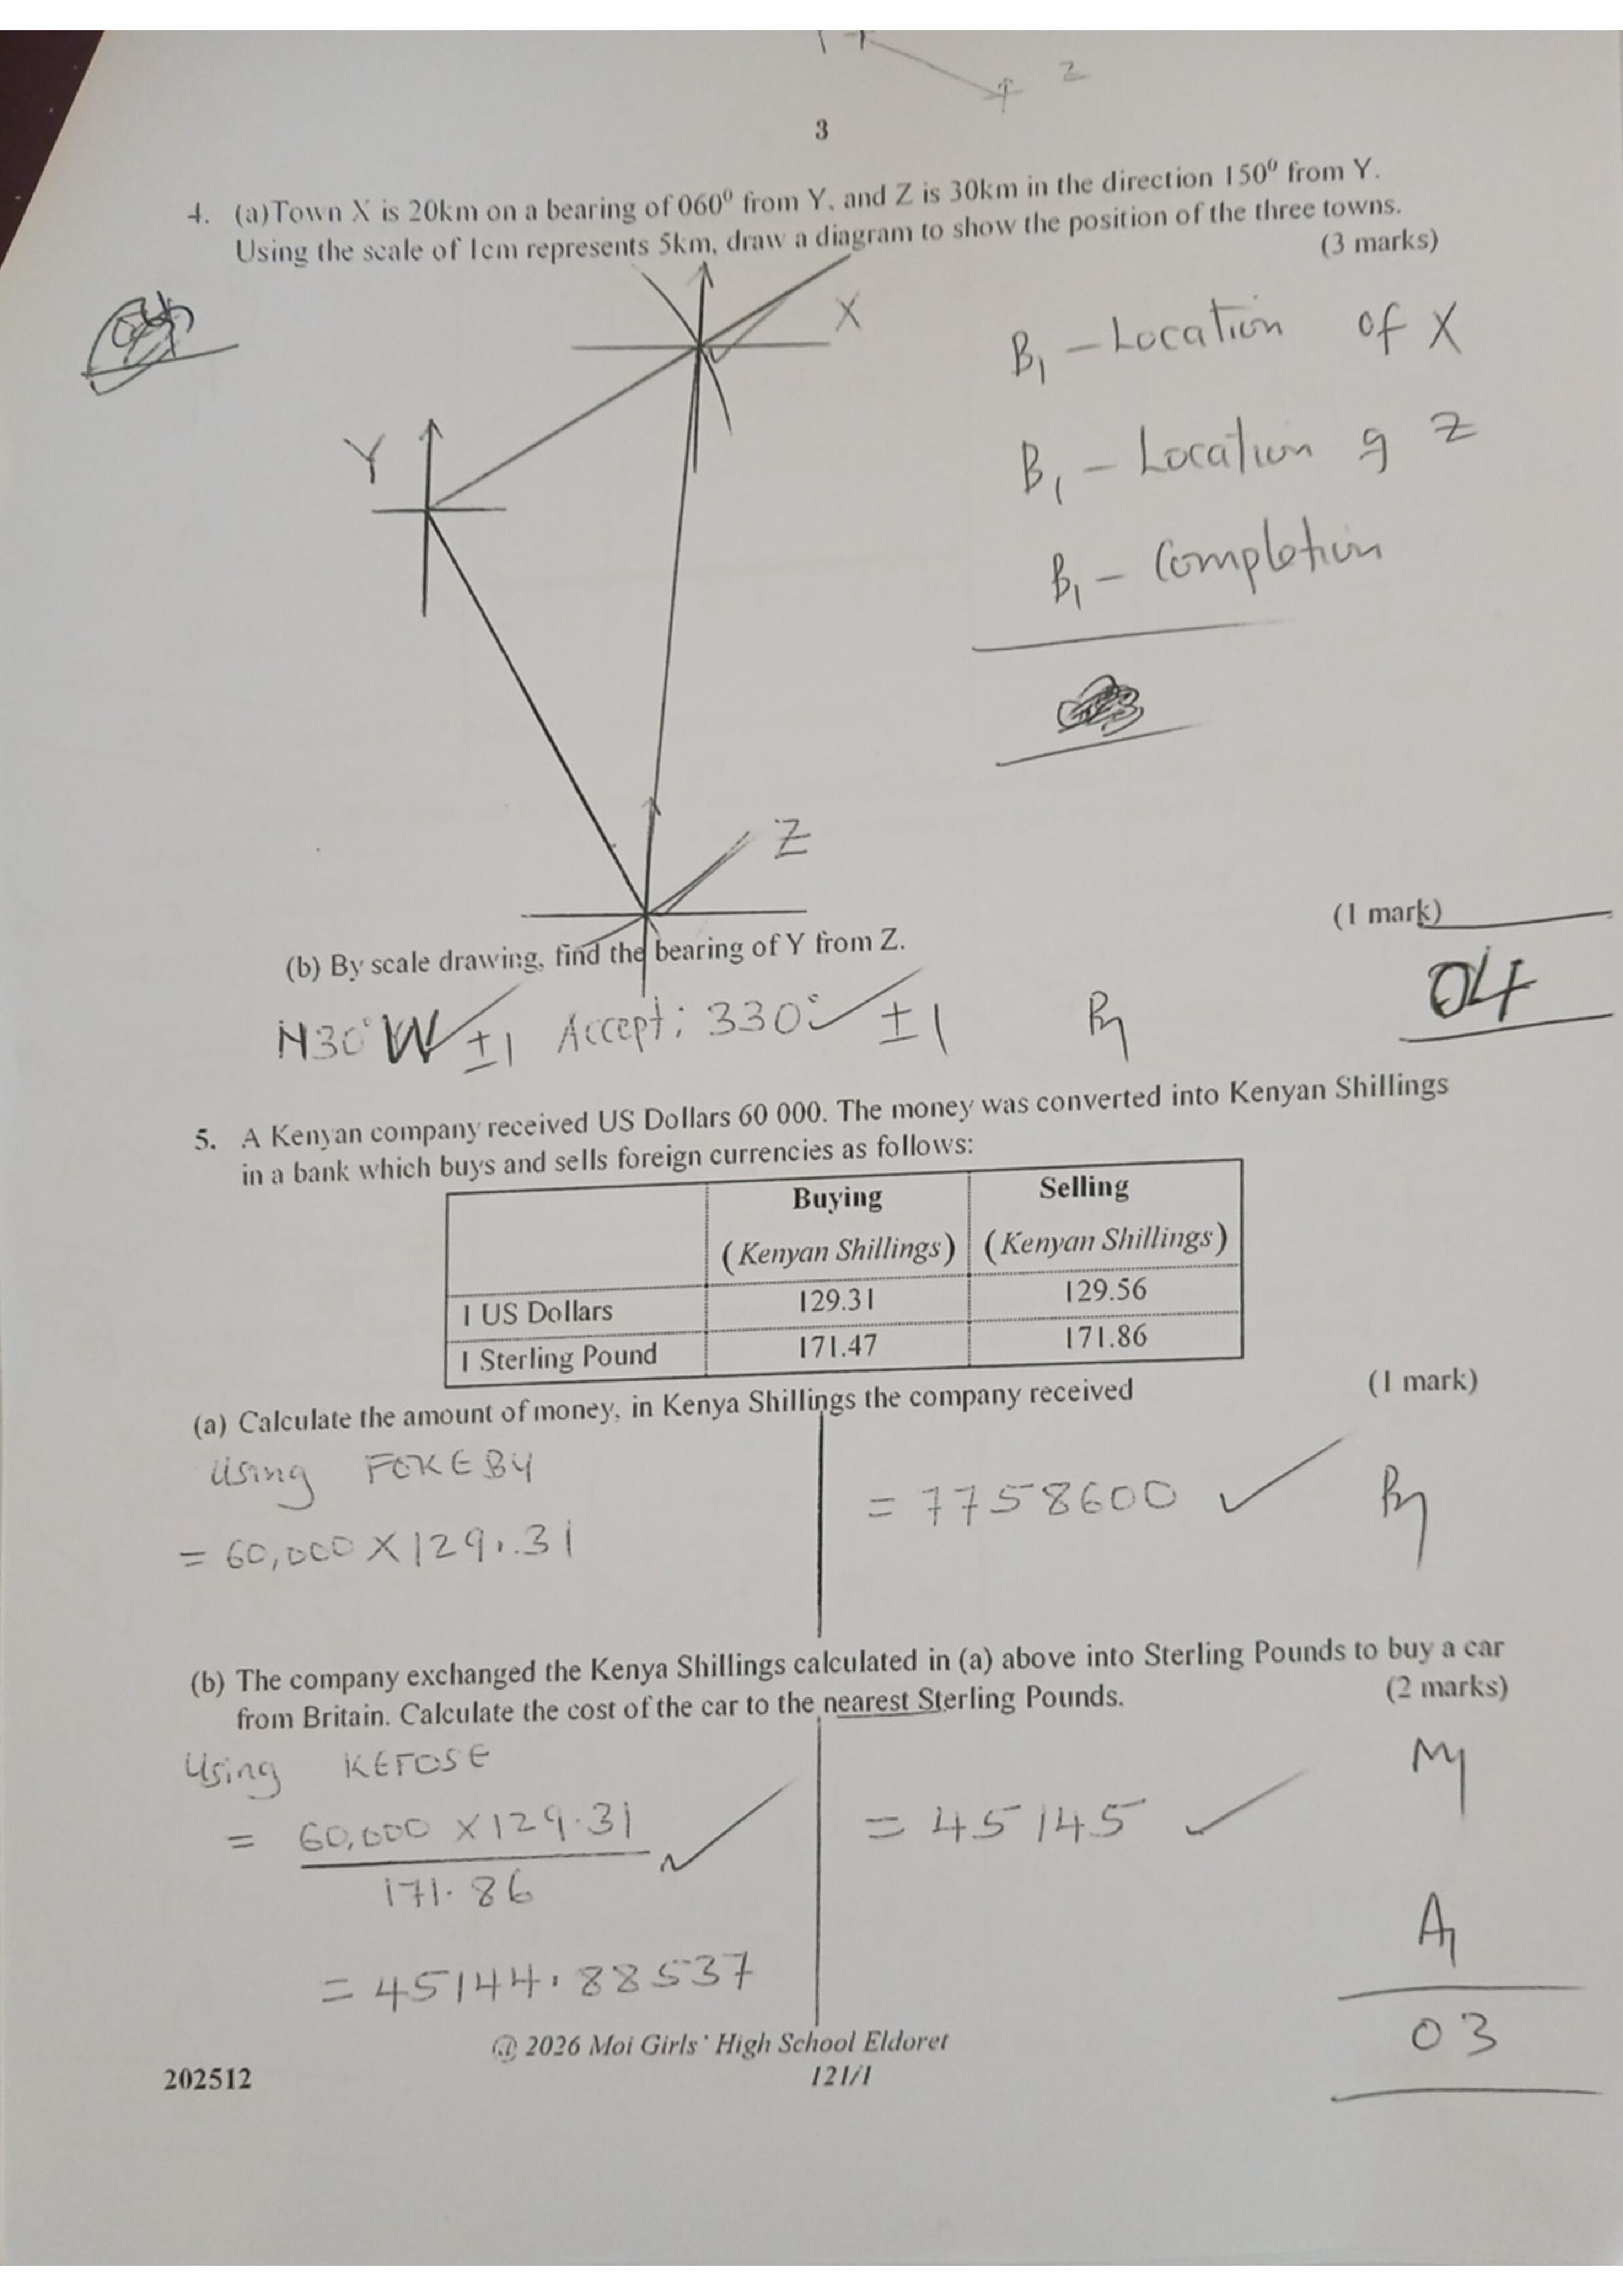 z
3
4. (a)Town X is 20km on a bearing of 060⁰ from Y, and Z is 30km in the direction 150⁰ from Y.
Using the scale of 1cm represents 5km, draw a diagram to show the position of the three towns.
(3 marks)
X
B1 – Location of X
Y
B1 – Location of Z
B1 – Completion
Z
(1 mark)
(b) By scale drawing, find the bearing of Y from Z.
04
N30°W ±1 Accept; 330° ±1 B1
5. A Kenyan company received US Dollars 60 000. The money was converted into Kenyan Shillings
in a bank which buys and sells foreign currencies as follows:
Buying Selling
(Kenyan Shillings) (Kenyan Shillings)
1 US Dollars 129.31 129.56
1 Sterling Pound 171.47 171.86
(a) Calculate the amount of money, in Kenya Shillings the company received (1 mark)
Using FOKEBY
= 7758600 B1
= 60,000 X 129.31
(b) The company exchanged the Kenya Shillings calculated in (a) above into Sterling Pounds to buy a car
from Britain. Calculate the cost of the car to the nearest Sterling Pounds. (2 marks)
Using KEFOSE
M1
= 60,000 X 129.31
171.86
= 45145
A1
= 45144.88537
03
@ 2026 Moi Girls' High School Eldoret
202512 121/1